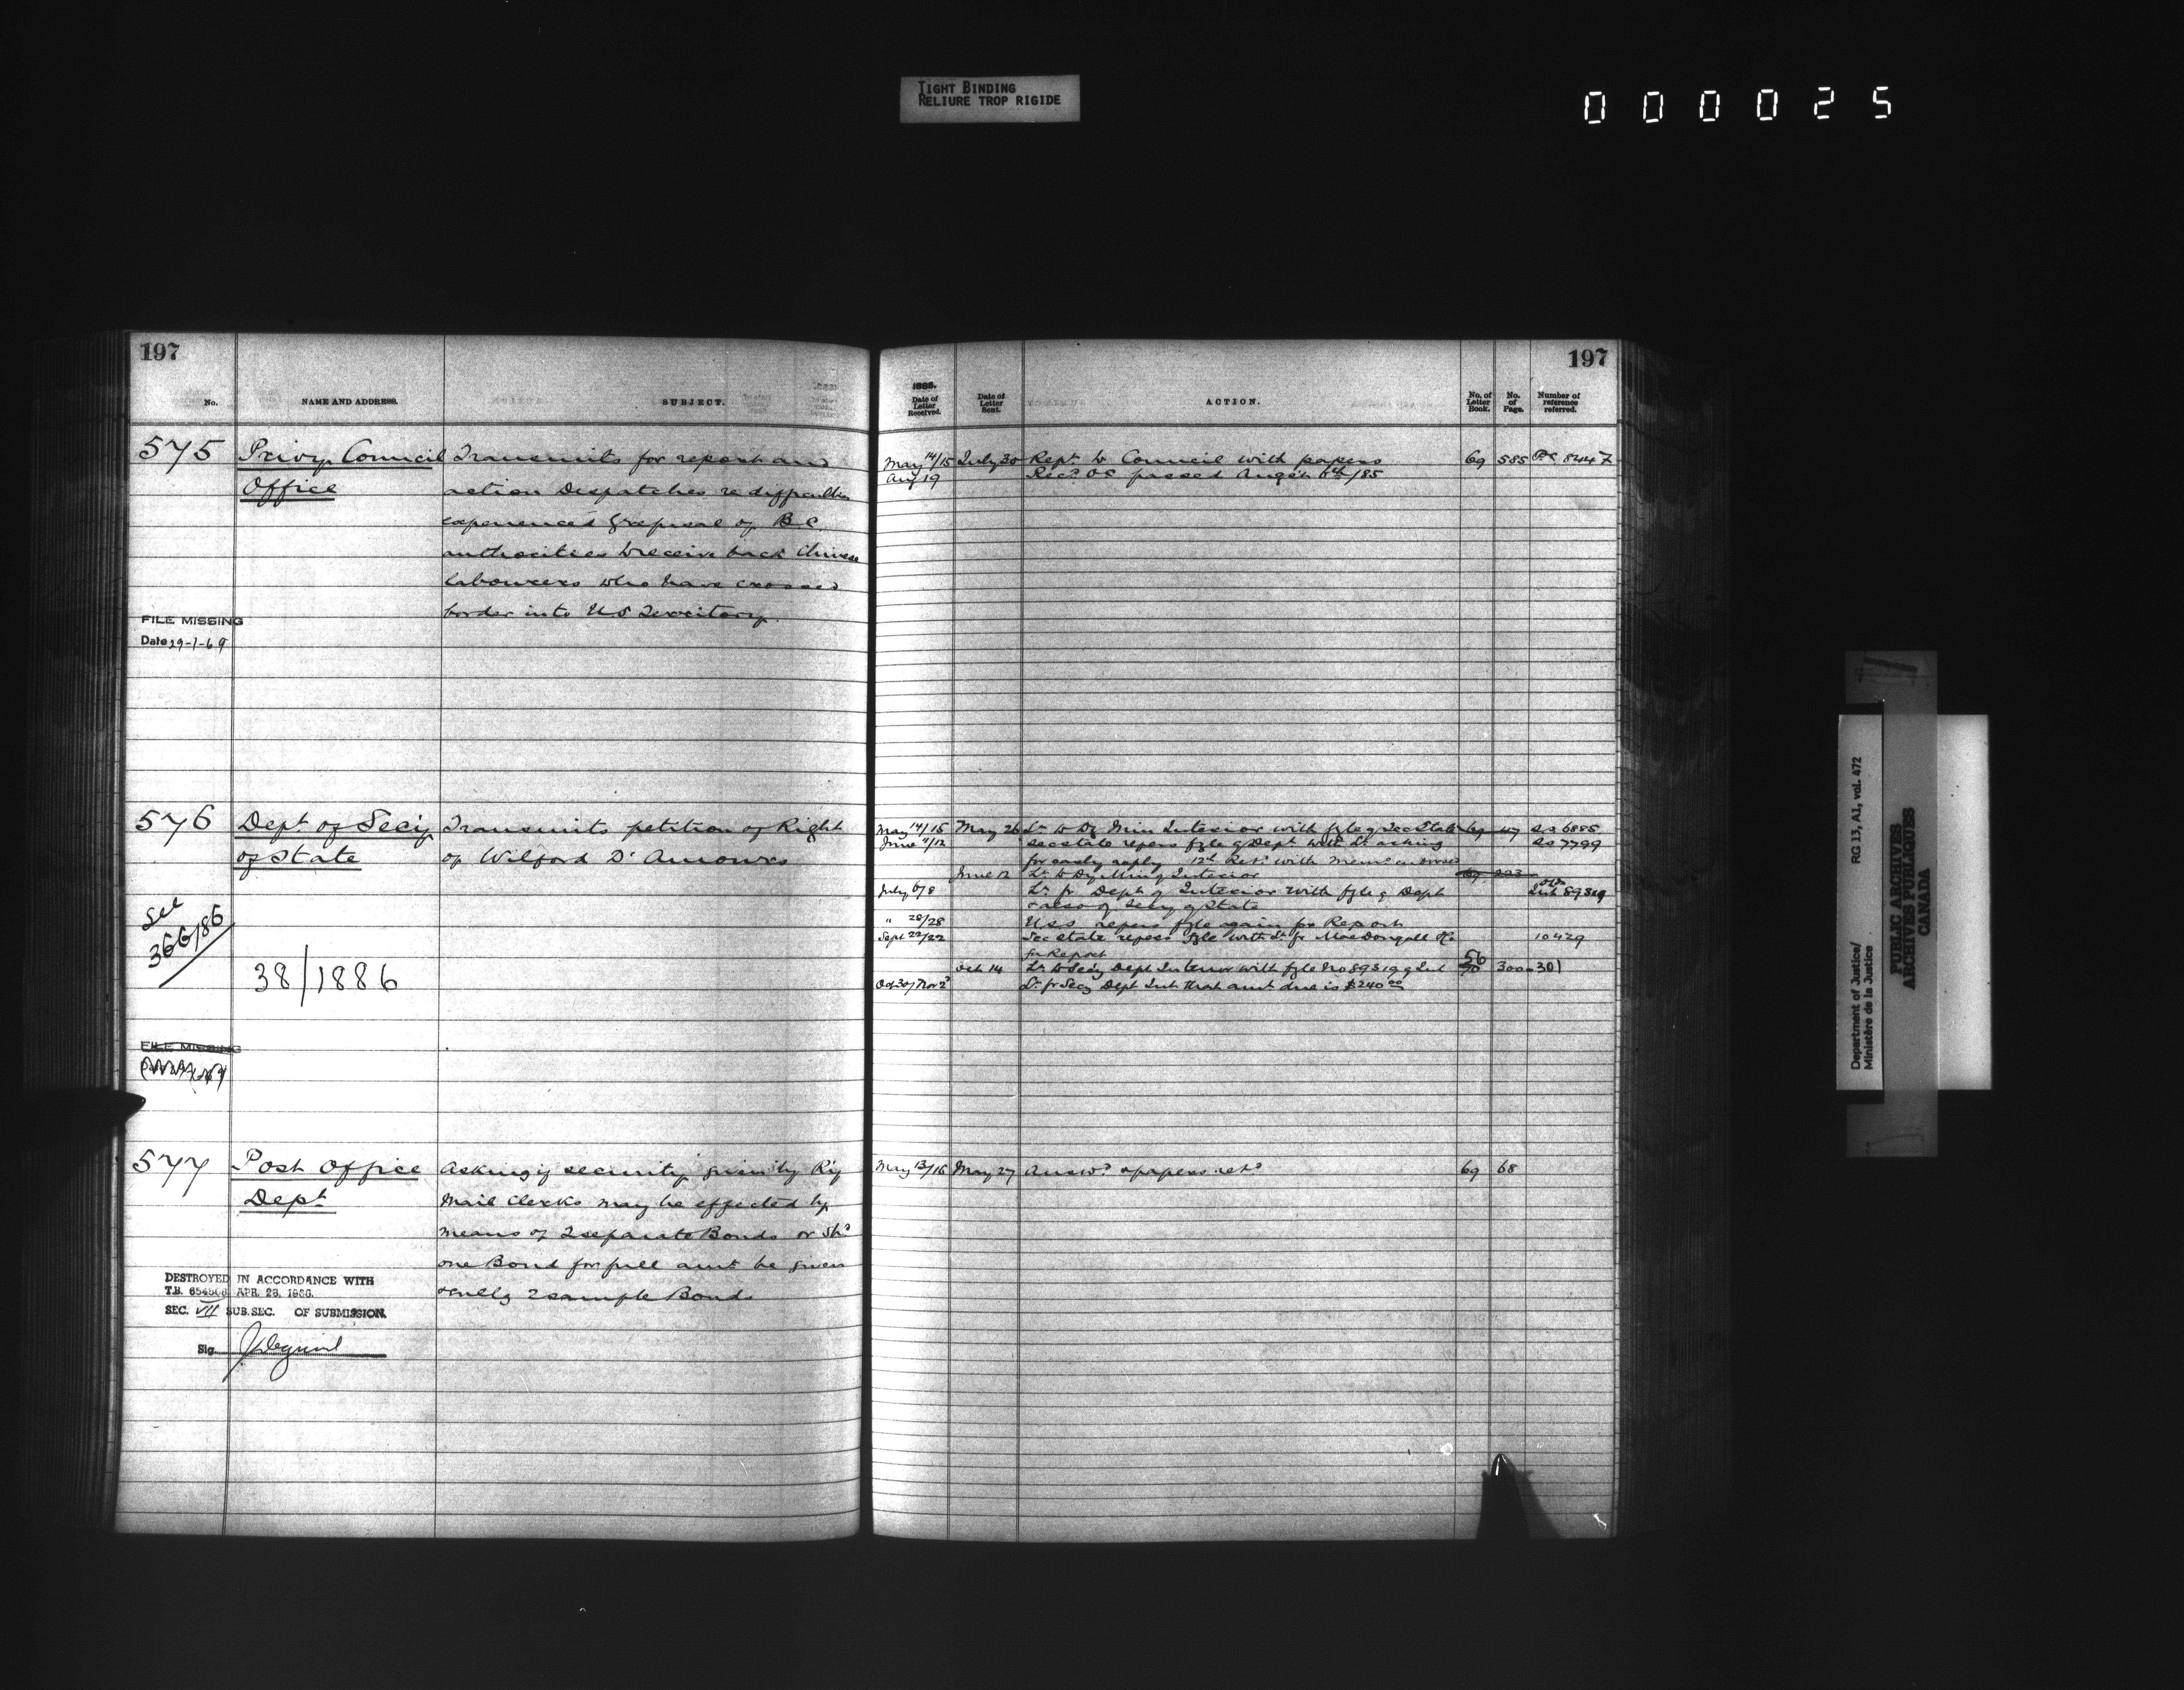 TIGHT BINDING
RELIURE TROP RIGIDE
000025
197
No.
NAME AND ADDRESS.
SUBJECT.
575 Privy Council Transmits for report and
Office action Despatches re difficulties
experienced & refusal of B.C.
authorities to receive back Chinese
labourers who have crossed
border into U S Territory.
FILE MISSING
Date 29-1-69
576 Dept of Secy Transmits petition of Right
of State of Wilford
See
366/86
38/1886
FILE MISSING
577 Post Office asking if security given by Ry
Dept Mail Clerks may be effected by
means of 2 separate Bonds or shd
one Bond for full amt be given
& encls 2 sample Bonds
DESTROYED IN ACCORDANCE WITH
T.B. APR. 23, 1936.
SEC. VII SUB.SEC. OF SUBMISSION.
Sig.
197
1885.
Date of Letter Received.
Date of Letter Sent.
ACTION.
No. of Letter Book.
No. of Page.
Number of reference referred.
May 14/15 July 30 Rept to Council with papers 69 585 P.C 844Z
Aug 19 Recd OC passed Aug 6th/85
May 14/15 May 26 Lr to Dy Min Interior with fyle of Sec State 69 SS 6885
June 11/12 Sec state refers fyle of Dept with Lr asking SS 7799
for early reply 12th Retd with memo
June 12 Lr to Dy Min of Interior 69
July 6/8 Lr fr Dept of Interior with fyle of Dept Int 89319
& also of Secy of State
" 28/28 U S S refers fyle again for Report
Sept 22/22 Sec state refers fyle with Lr fr MacDougall 10429
for Report
Oct 14 Lr to Secy Dept Interior with fyle No 89319 of Int 56 70 300-301
Oct 30/Nov 2 Lr fr Secy Dept Int that amt due is $240 00
May 13/16 May 27 Answd & papers retd 69 68
Department of Justice/
Ministère de la Justice
RG 13, A1, vol. 472
PUBLIC ARCHIVES
ARCHIVES PUBLIQUES
CANADA